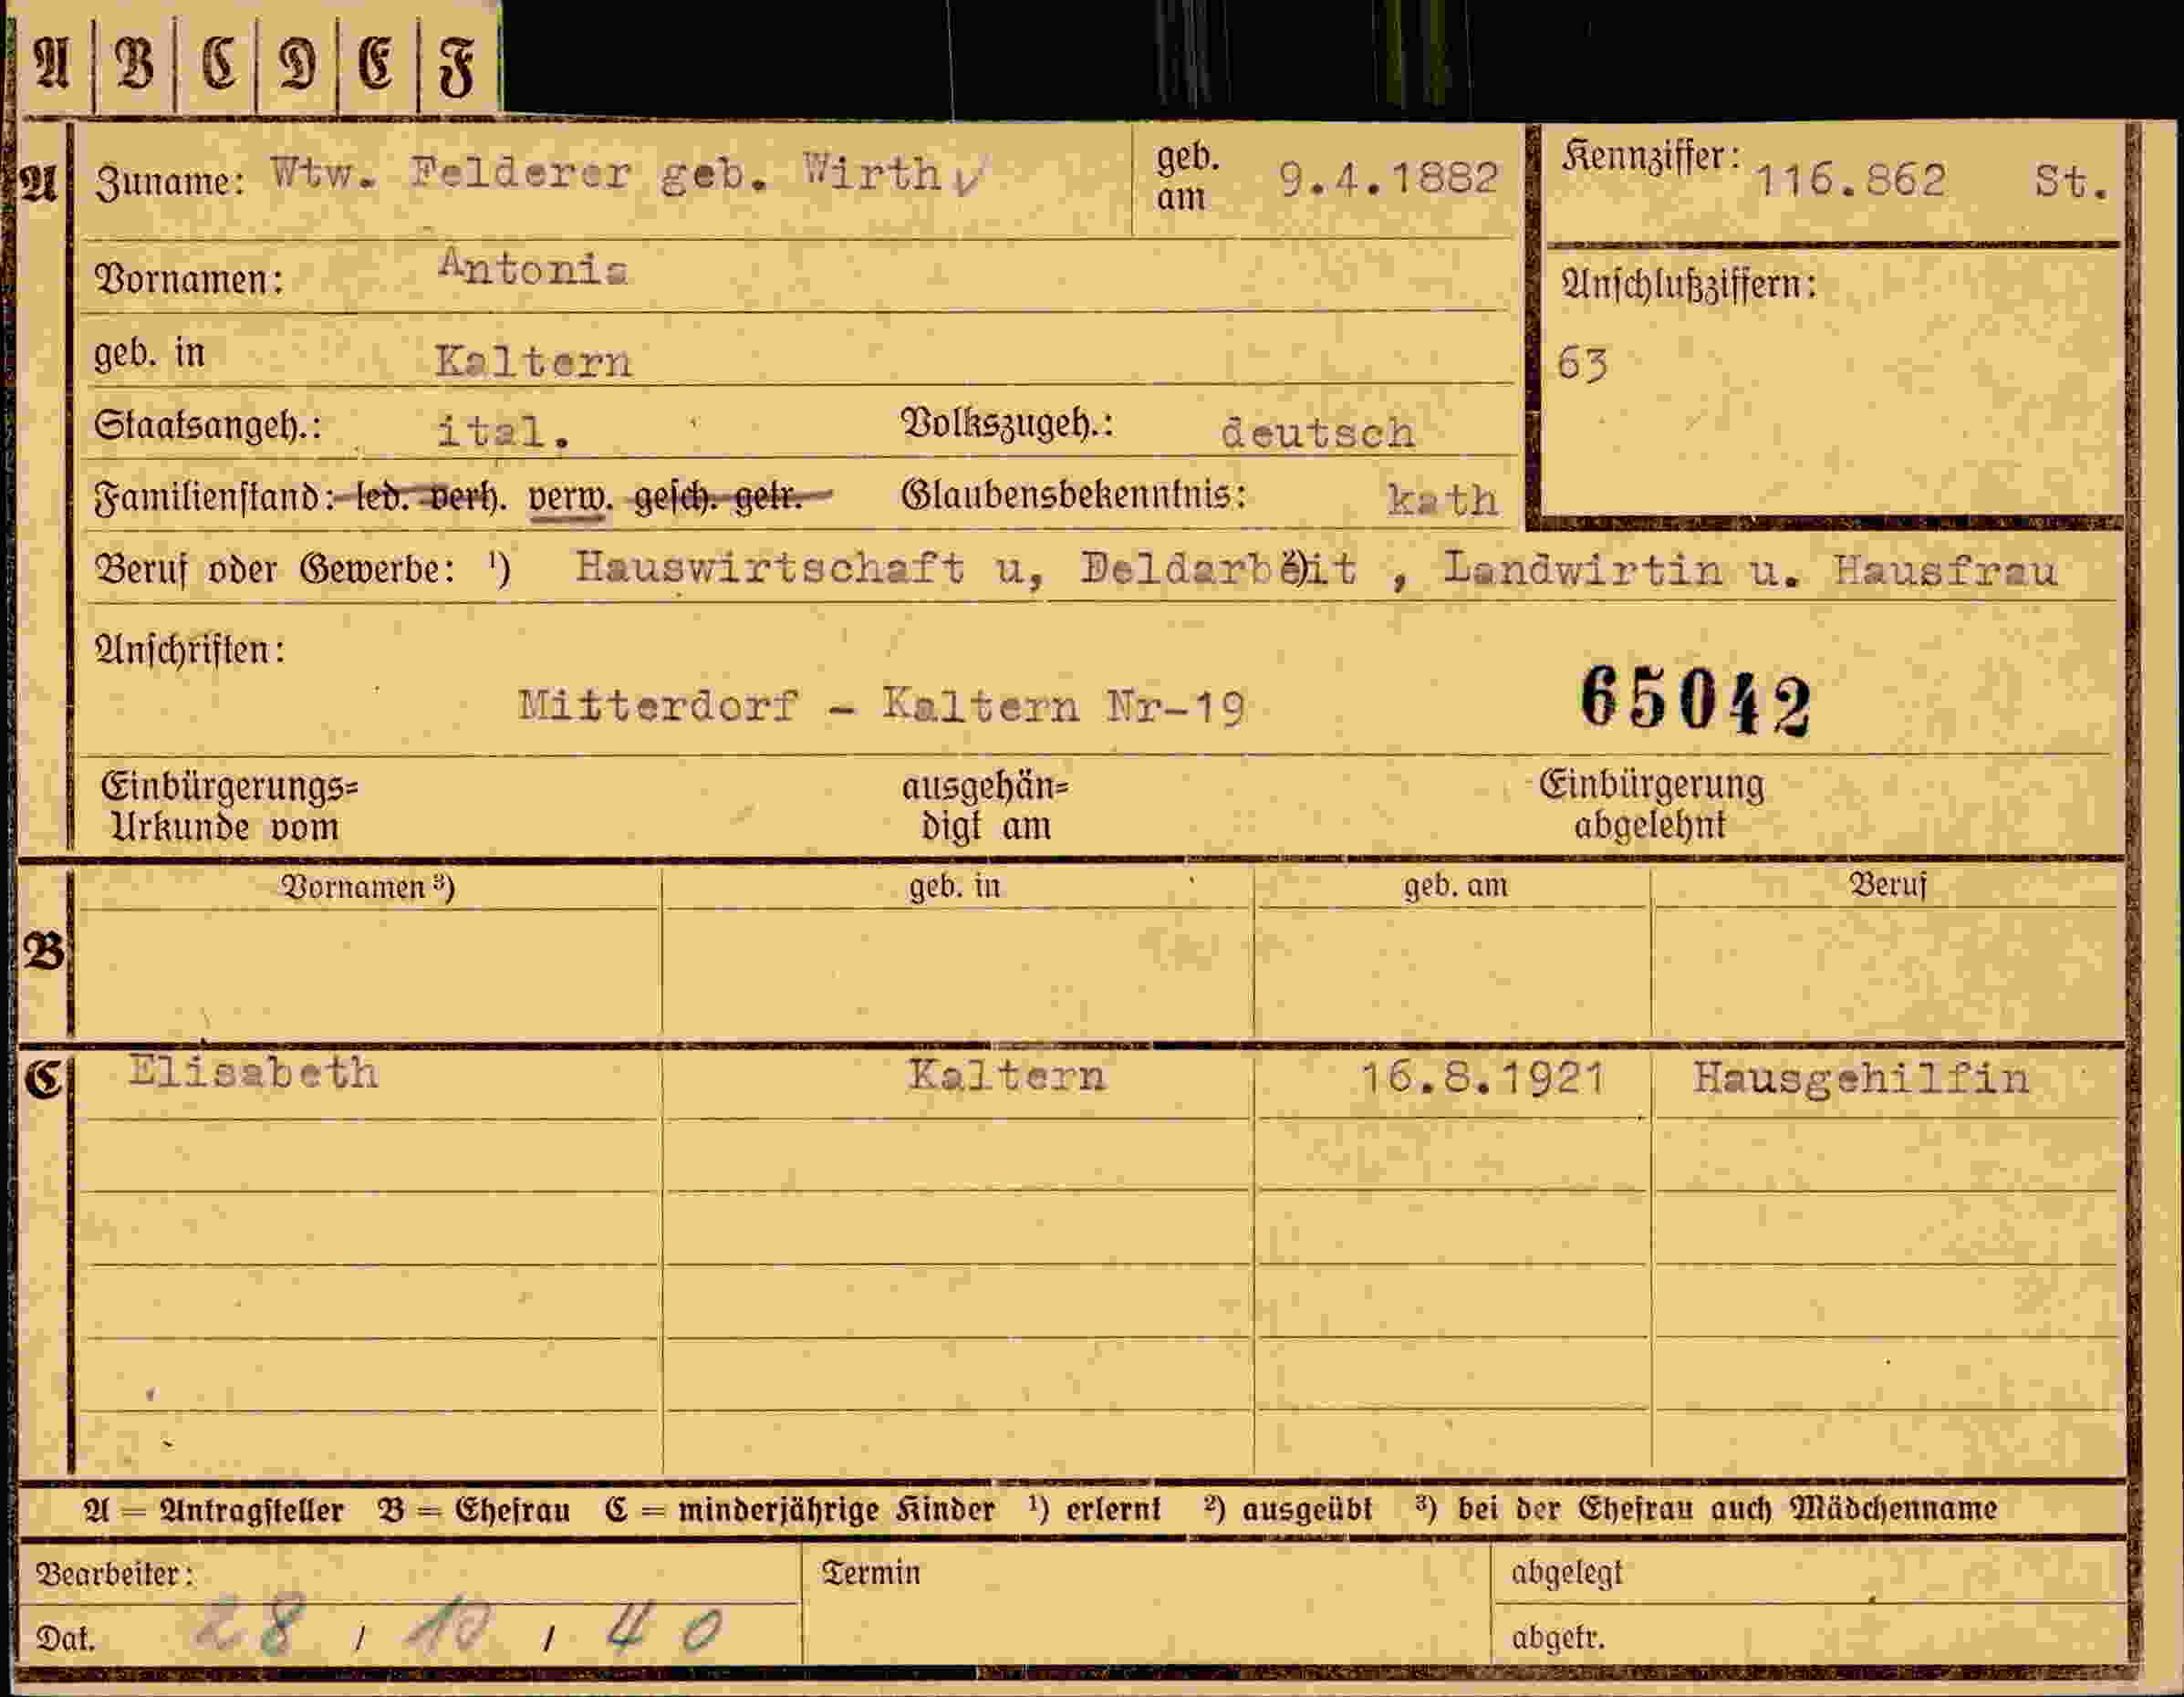 A B C D E F
A Zuname: Wtw. Felderer geb. Wirth geb. am 9.4.1882 Kennziffer: 116.862 St.
Vornamen: Antonia
Anschlußziffern:
geb. in Kaltern
63
Staatsangeh.: ital. Volkszugeh.: deutsch
Familienstand: led. verh. verw. gesch. getr. Glaubensbekenntnis: kath
Beruf oder Gewerbe: ¹) Hauswirtschaft u, Deldarbeit ²) , Landwirtin u. Hausfrau
Anschriften:
Mitterdorf - Kaltern Nr-19 65042
Einbürgerungs= ausgehän= Einbürgerung
Urkunde vom digt am abgelehnt
Vornamen ³) geb. in geb. am Beruf
B
C Elisabeth Kaltern 16.8.1921 Hausgehilfin
A = Antragsteller B = Ehefrau C = minderjährige Kinder ¹) erlernt ²) ausgeübt ³) bei der Ehefrau auch Mädchenname
Bearbeiter: Termin abgelegt
Dat. 28 / 10 / 40 abgetr.